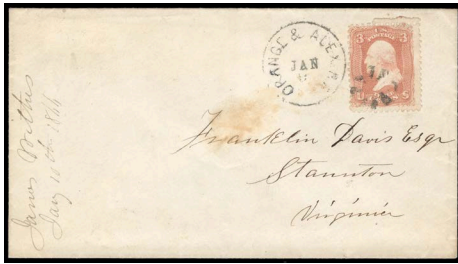 ORANGE & ALEX. R.R.
JAN
3 3
Franklin Davis Esqr
Staunton
Virginia
James
Jany 1866